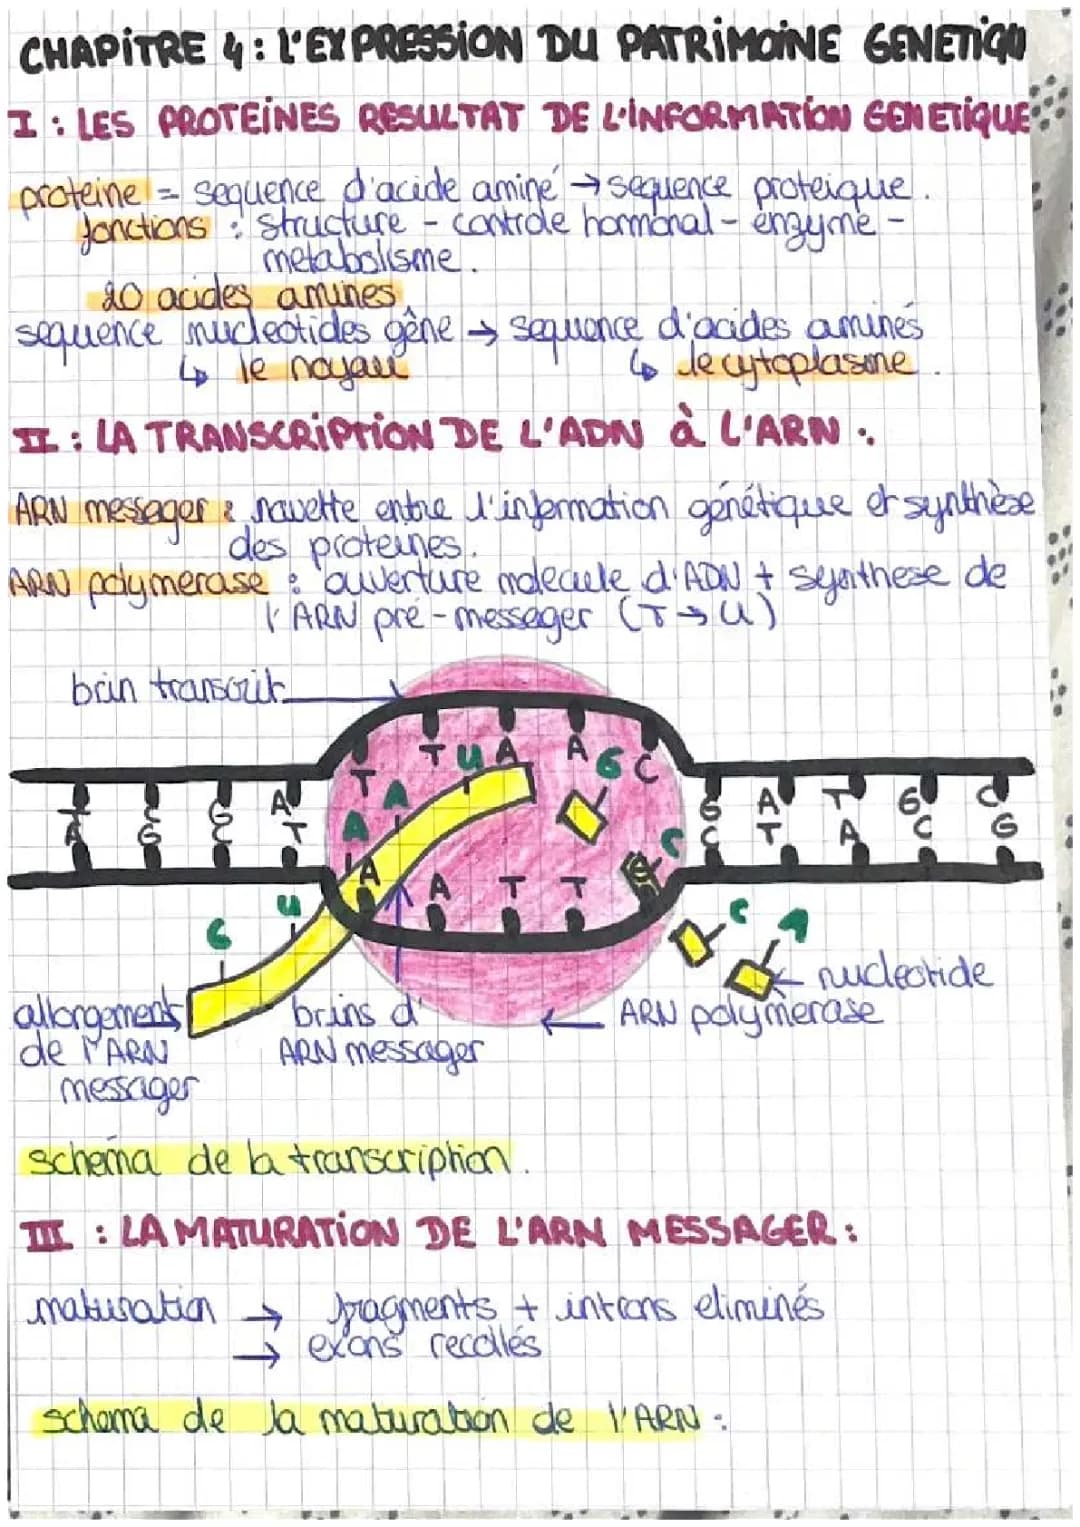 CHAPITRE 4 : L'EXPRESSION DU PATRIMOINE GENETIQU
I : LES PROTEINES RESULTAT DE L'INFORMATION GENETIQUE
proteine = sequence d'acide aminé → sequence proteique.
fonctions : structure - controle hormonal - enzyme -
metabolisme.
20 acides amines
sequence nucleotides gêne → sequence d'acides aminés
↳ le noyau ↳ le cytoplasme.
II : LA TRANSCRIPTION DE L'ADN à L'ARN :
ARN messager : navette entre l'information génétique et synthèse
des proteines.
ARN polymerase : ouverture molecule d'ADN + synthese de
l'ARN pré-messager (T → U)
brin transcrit
T U A A G C
T A
A T G A T G C
A G C T A C T A C G
A A T T C
G U C A
nucleotide
allongement brins d' ARN polymerase
de l'ARN ARN messager
messager
schema de la transcription.
III : LA MATURATION DE L'ARN MESSAGER :
maturation → fragments + introns eliminés
→ exons recollés
schema de la maturation de l'ARN :